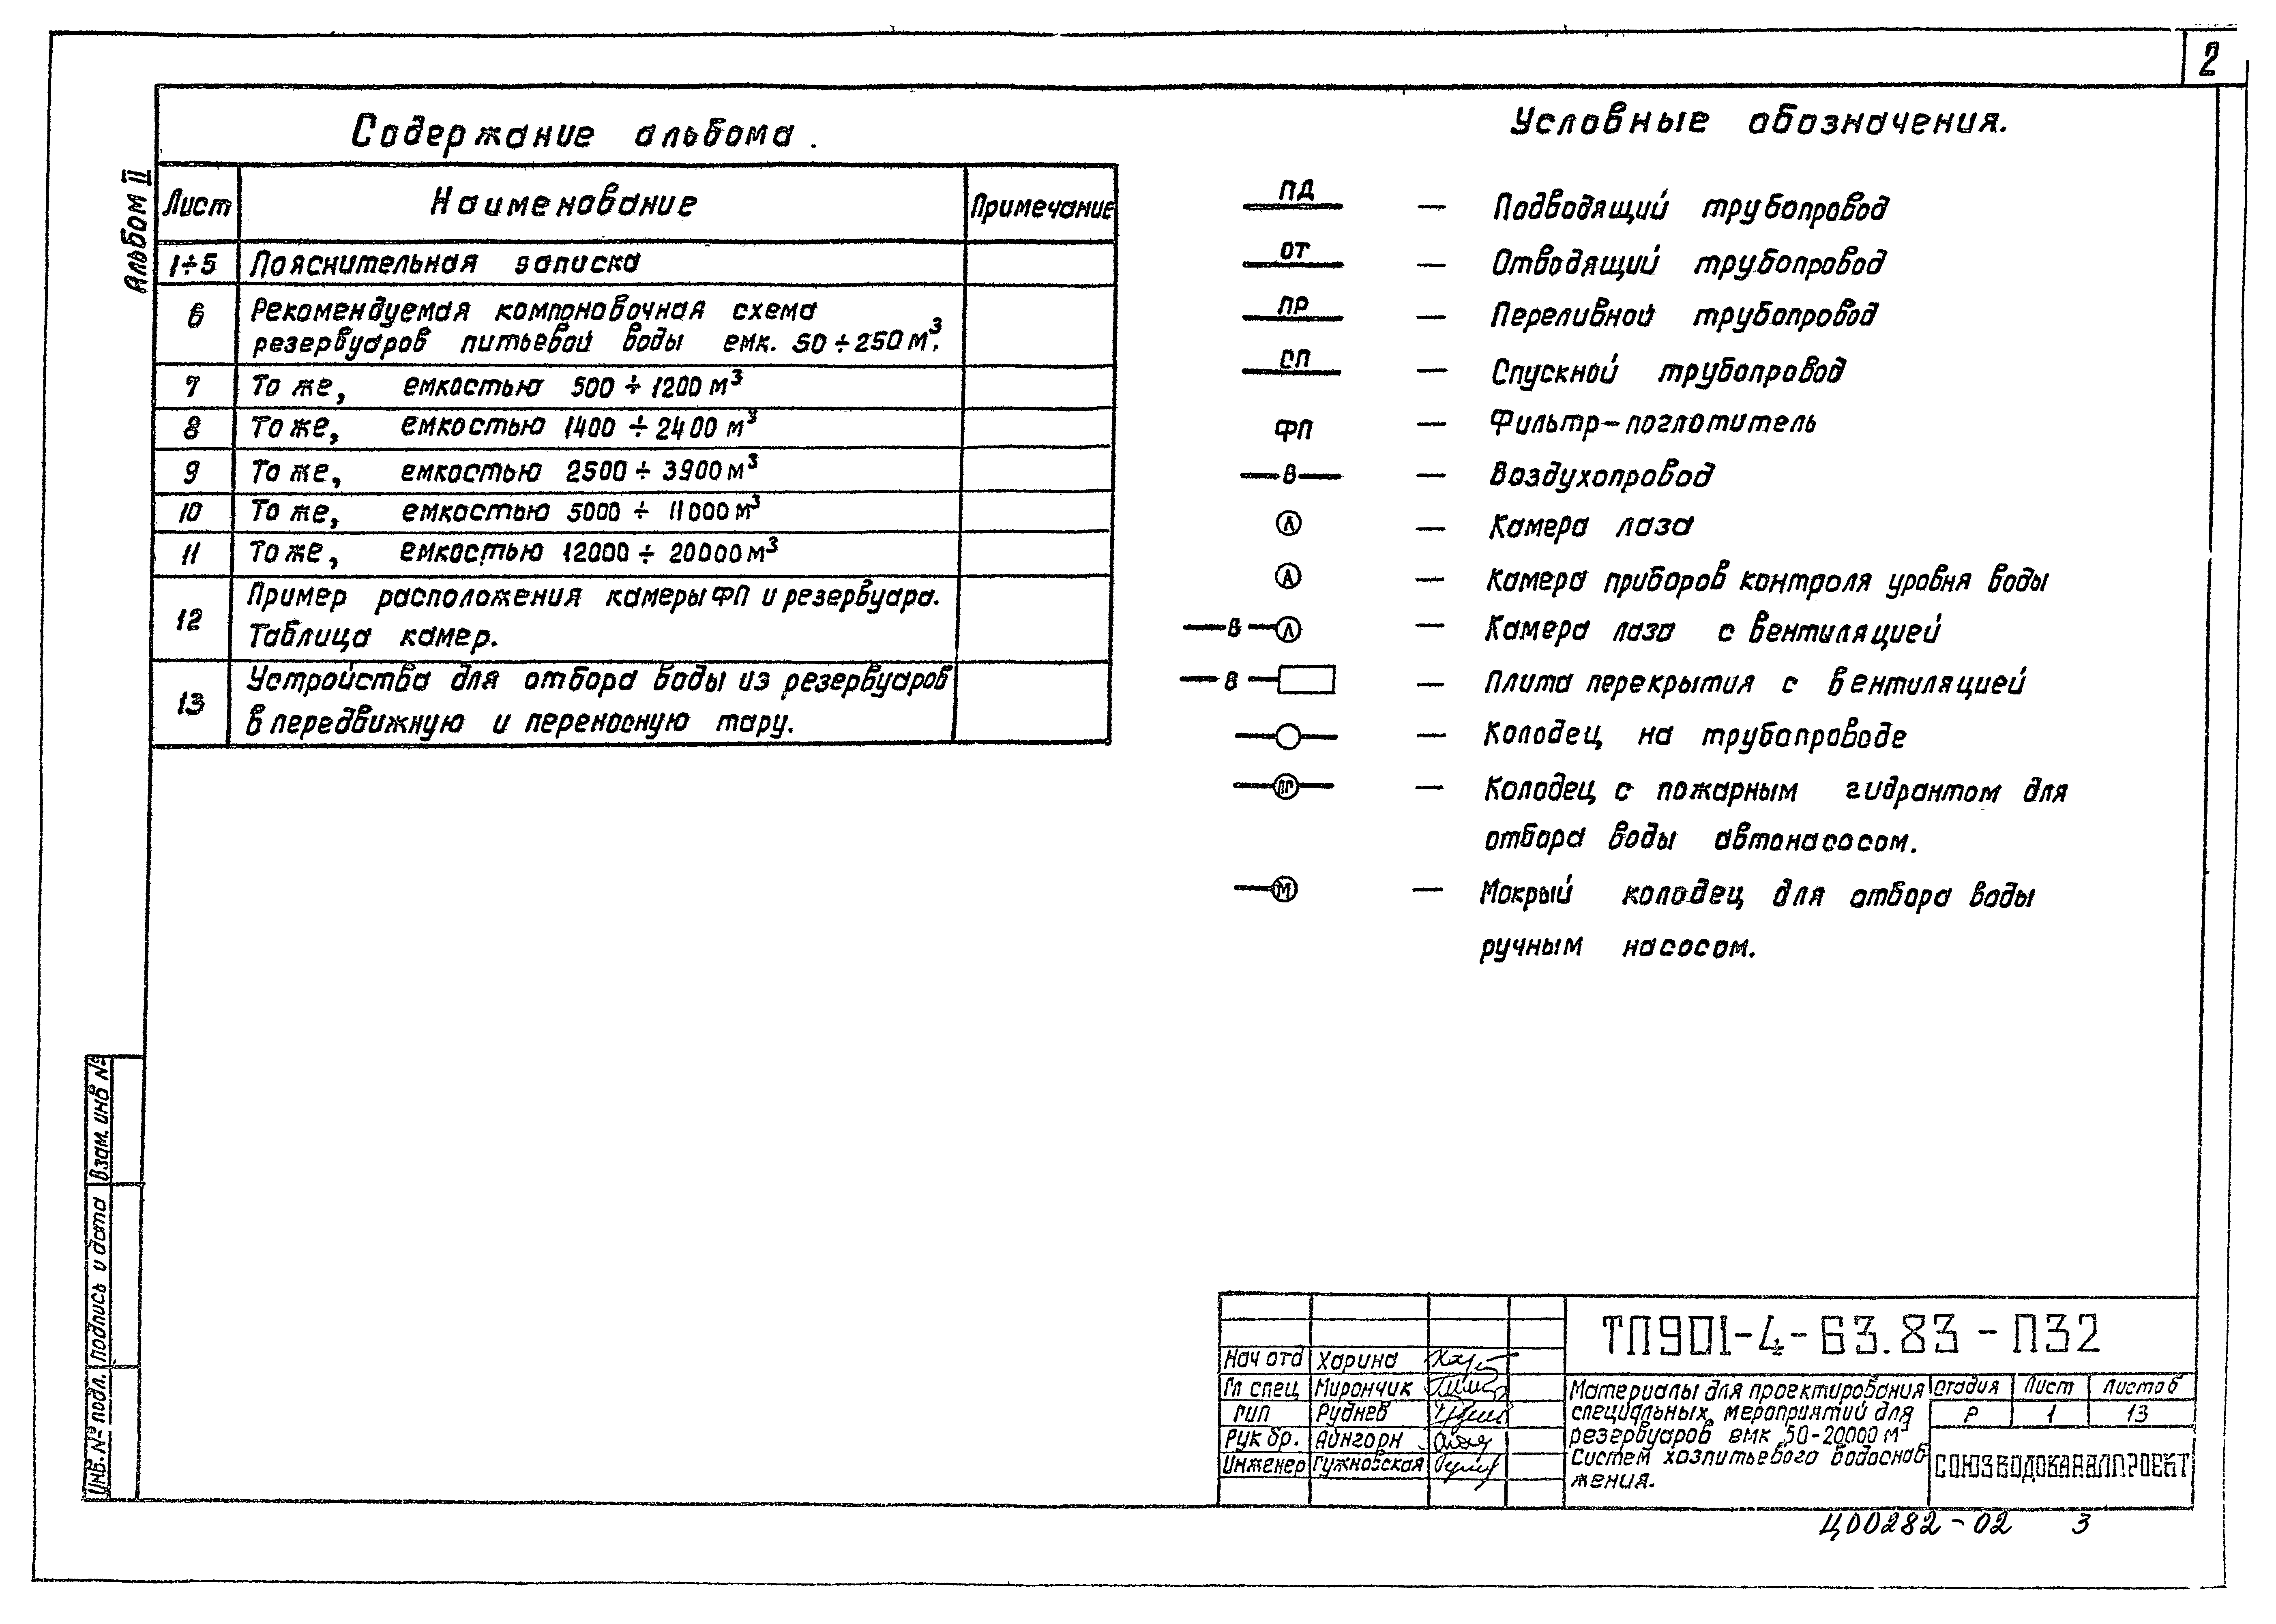 2
Альбом II
Содержание альбома.
Лист Наименование Примечание
1÷5 Пояснительная записка
6 Рекомендуемая компоновочная схема
резервуаров питьевой воды емк. 50÷250 м³.
7 То же, емкостью 500 ÷ 1200 м³
8 То же, емкостью 1400 ÷ 2400 м³
9 То же, емкостью 2500 ÷ 3900 м³
10 То же, емкостью 5000 ÷ 11000 м³
11 То же, емкостью 12000 ÷ 20000 м³
12 Пример расположения камеры ФП и резервуара.
Таблица камер.
13 Устройства для отбора воды из резервуаров
в передвижную и переносную тару.
Условные обозначения.
ПД — Подводящий трубопровод
ОТ — Отводящий трубопровод
ПР — Переливной трубопровод
СП — Спускной трубопровод
ФП — Фильтр-поглотитель
В — Воздухопровод
Л — Камера лаза
А — Камера приборов контроля уровня воды
В Л — Камера лаза с вентиляцией
В — Плита перекрытия с вентиляцией
— Колодец на трубопроводе
ПГ — Колодец с пожарным гидрантом для
отбора воды автонасосом.
М — Мокрый колодец для отбора воды
ручным насосом.
Взам. инв №
Подпись и дата
Инв. № подл.
Нач отд Харина
Гл спец Мирончик
ГИП Руднев
Рук бр. Айнгорн
Инженер Гужновская
ТП901-4-63.83-ПЗ2
Материалы для проектирования
специальных мероприятий для
резервуаров емк 50-20000 м³
Систем хозпитьевого водоснаб
жения.
Стадия Лист Листов
Р 1 13
СОЮЗВОДОКАНАЛПРОЕКТ
Ц00282-02 3